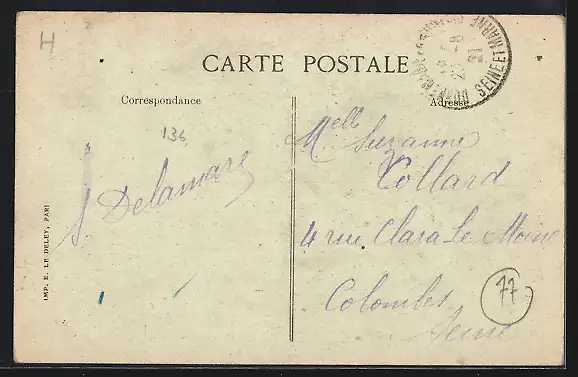 H
CARTE POSTALE
Correspondance
Adresse
136
SEINE ET MARNE
21
Melle Suzanne
Collard
4 rue Clara Le Moine
Colombes
Seine
S Delamare
77
IMP. E. LE DELEY, PARI